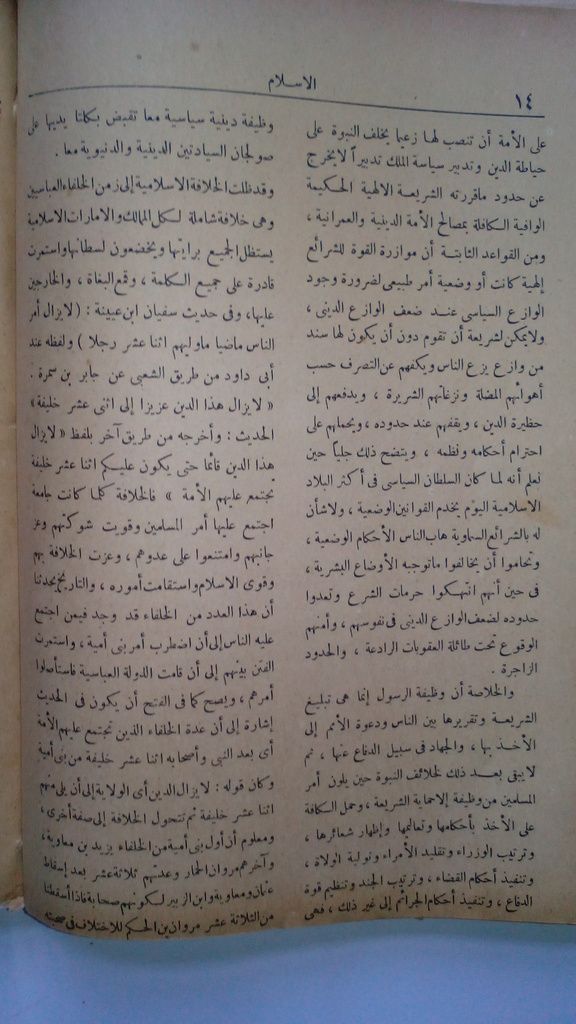 ١٤
الاسلام
على الأمة أن تنصب لها زعيما يخلف النبوة على
حياطة الدين وتدبير سياسة الملك تدبيراً لايخرج
عن حدود ماقررته الشريعة الالهية الحكيمة
الوافية الكافلة بمصالح الأمة الدينية والعمرانية ،
ومن القواعد الثابتة أن موازرة القوة للشرائع
إلهية كانت أو وضعية أمر طبيعى لضرورة وجود
الوازع السياسى عند ضعف الوازع الدينى ،
ولايمكن لشريعة أن تقوم دون أن يكون لها سند
من وازع يزع الناس ويكفهم عن التصرف حسب
أهوائهم المضلة ونزغاتهم الشريرة ، ويدفعهم إلى
حظيرة الدين ، ويقفهم عند حدوده ، ويحملهم على
احترام أحكامه ونظمه ، ويتضح ذلك جلياً حين
نعلم أنه لما كان السلطان السياسى فى أكثر البلاد
الاسلامية اليوم يخدم القوانين الوضعية ، ولاشأن
له بالشرائع السماوية هاب الناس الأحكام الوضعية ،
وتحاموا أن يخالفوا ماتوجبه الأوضاع البشرية ،
فى حين أنهم انتهكوا حرمات الشرع وتعدوا
حدوده لضعف الوازع الدينى فى نفوسهم ، وأمنهم
الوقوع تحت طائلة العقوبات الرادعة ، والحدود
الزاجرة .
والخلاصة أن وظيفة الرسول إنما هى تبليغ
الشريعة وتقريرها بين الناس ودعوة الأمم إلى
الأخذ بها ، والجهاد فى سبيل الدفاع عنها ، ثم
لايبقى بعد ذلك لخلائف النبوة حين يلون أمر
المسلمين من وظيفة إلاحماية الشريعة ، وحمل الكافة
على الأخذ بأحكامها وتعاليمها وإظهار شعائرها ،
وترتيب الوزراء وتقليد الأمراء وتولية الولاة ،
وتنفيذ أحكام القضاء ، وترتيب الجند وتنظيم قوة
الدفاع ، وتنفيذ أحكام الجرائم إلى غير ذلك ، فهى
وظيفة دينية سياسية معا تقبض بكلتا يديها على
صولجان السيادتين الدينية والدنيوية معا .
وقد ظلت الخلافة الاسلامية إلى زمن الخلفاء العباسيين
وهى خلافة شاملة لكل الممالك والامارات الاسلامية
يستظل الجميع برايتها ويخضعون لسطانها واستمرت
قادرة على جميع الكلمة ، وقمع البغاة ، والخارجين
عليها، وفى حديث سفيان ابن عيينة : ( لايزال أمر
الناس ماضيا ماوليهم اثنا عشر رجلا ) ولفظه عند
أبى داود من طريق الشعبى عن جابر بن سمرة .
« لايزال هذا الدين عزيزا إلى اثنى عشر خليفة »
الحديث : وأخرجه من طريق آخر بلفظ « لايزال
هذا الدين قائما حتى يكون عليكم اثنا عشر خليفة
تجتمع عليهم الأمة » فالخلافة كلما كانت جامعة
اجتمع عليها أمر المسلمين وقويت شوكتهم وعز
جانبهم وامتنعوا على عدوهم ، وعزت الخلافة بهم
وقوى الاسلام واستقامت أموره ، والتاريخ يحدثنا
أن هذا العدد من الخلفاء قد وجد فيمن اجتمع
عليه الناس إلى أن اضطرب أمر بنى أمية ، واستمرت
الفتن بينهم إلى أن قامت الدولة العباسية فاستأصلوا
أمرهم ، ويصح كما فى الفتح أن يكون فى الحديث
إشارة إلى أن عدة الخلفاء الذين تجتمع عليهم الأمة
أى بعد النبى وأصحابه اثنا عشر خليفة من بنى أمية
وكان قوله : لايزال الدين أى الولاية إلى أن يلى منهم
اثنا عشر خليفة ثم تتحول الخلافة إلى صفة أخرى ،
ومعلوم أن أول بنى أمية من الخلفاء يزيد بن معاوية ،
وآخرهم مروان الحمار وعدتهم ثلاثة عشر بعد إسقاط
عثمان ومعاوية وابن الزبير لكونهم صحابة فاذا أسقطنا
من الثلاثة عشر مروان بن الحكم للاختلاف فى صحبته